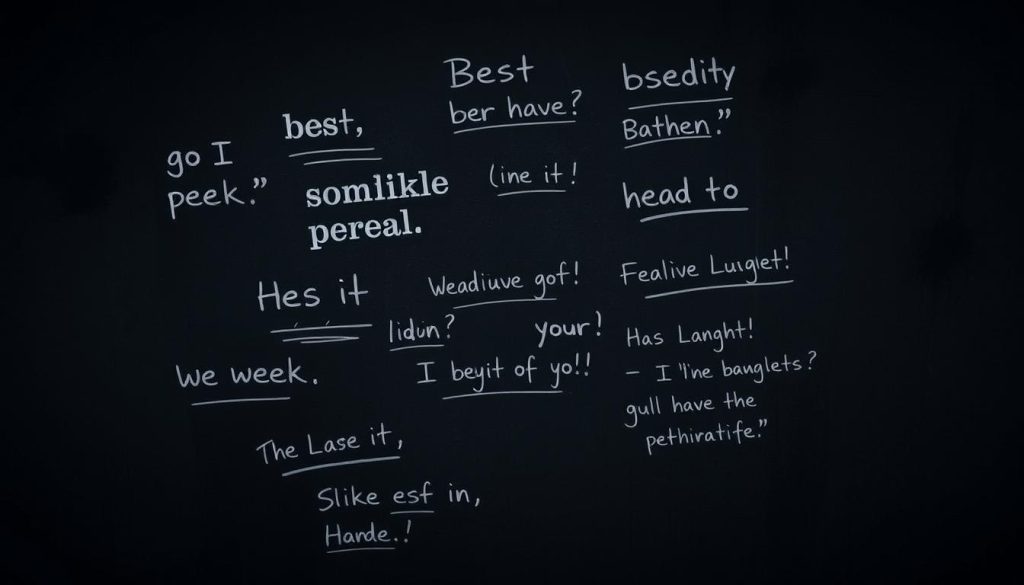 Best
ber have?
bsedity
Bathen."
best,
go I
peek."
somlikle
pereal.
(ine it!
head to
Hes it
Weadiuve gof!
Fealive Luigiet!
lidun?
your!
I beyit of yo!!
Has Langht!
- I 'line banglets?
gull have the
pethiratife."
We week.
The Lase it,
Slike esf in,
Hande.!